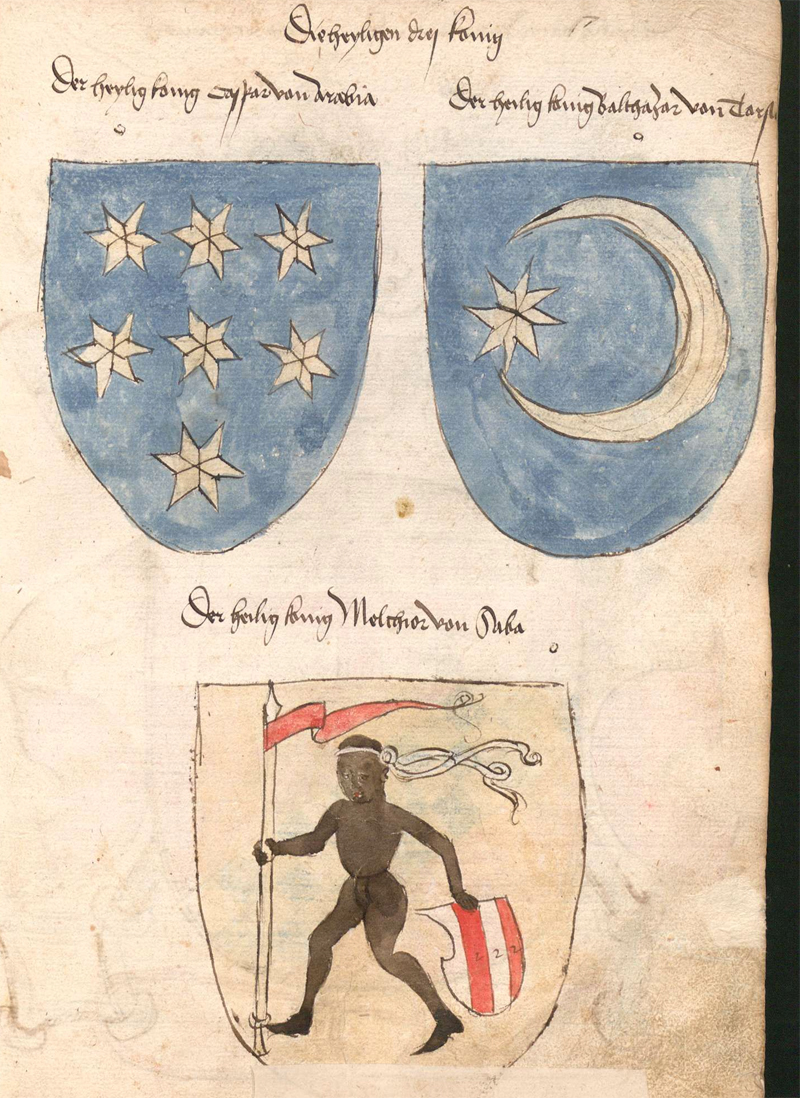 Die heyligen drej konig
Der heylig konig Caspar von Arabia
Der heilig konig Balthazar von Tarsi
Der heilig konig Melchior von Saba
2 2 2